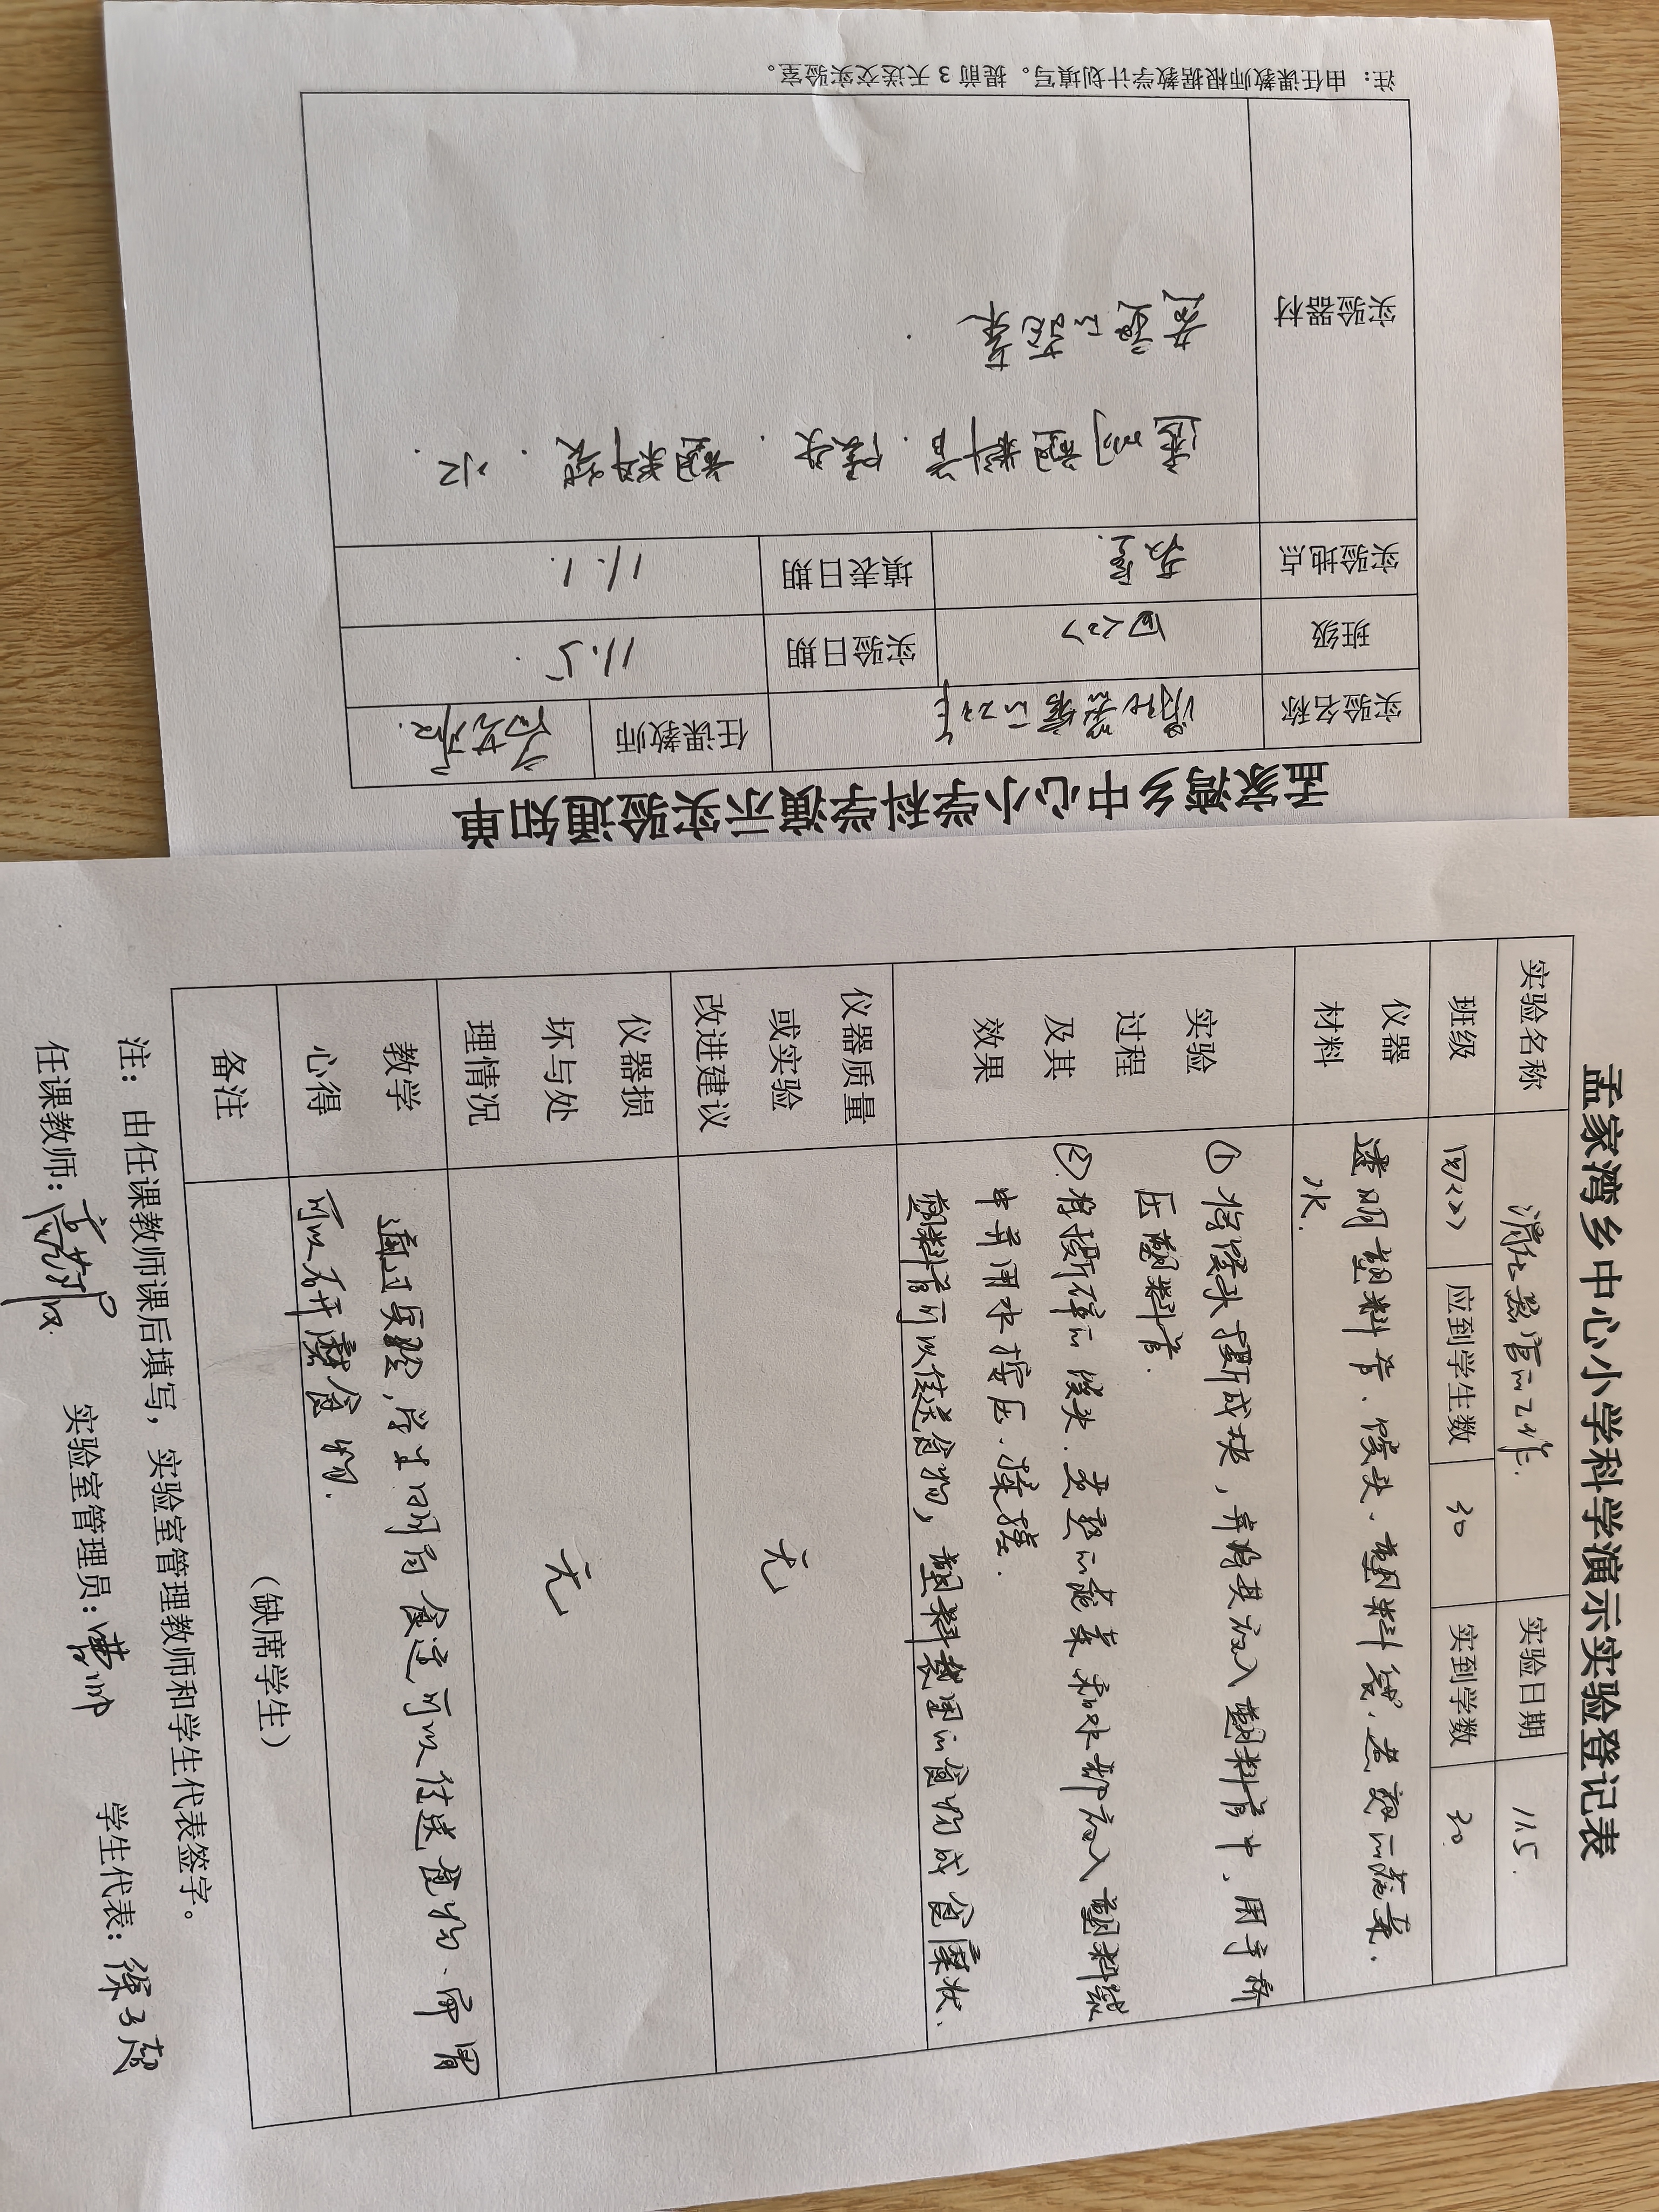 孟家湾乡中心小学科学演示实验通知单
实验名称 消化器官的工作 任课教师
班级 四<2> 实验日期 11.5.
实验地点 教室. 填表日期 11.1.
实验器材 透明塑料管. 馒头. 塑料袋. 水.
煮熟的蔬菜
注：由任课教师根据教学计划填写。提前 3 天送交实验室。
孟家湾乡中心小学科学演示实验登记表
实验名称 消化器官的工作. 实验日期 11.5.
班级 四<2> 应到学生数 30 实到学数 30
仪器材料 透明塑料管、馒头、塑料袋、煮熟的蔬菜、
水.
实验过程及其效果 ① 将馒头捏成块，并将其放入塑料管中，用手挤
压塑料管.
② 将捏碎的馒头、煮熟的蔬菜和水都放入塑料袋
中并用水按压、揉搓.
塑料管可以传送食物，塑料袋里的食物成食糜状.
仪器质量或实验改进建议 无
仪器损坏与处理情况 无
教学心得 通过实验，学生明白食道可以传送食物、而胃
可以研磨食物.
备注 （缺席学生）
注：由任课教师课后填写，实验室管理教师和学生代表签字。
任课教师： 实验室管理员： 学生代表：徐子